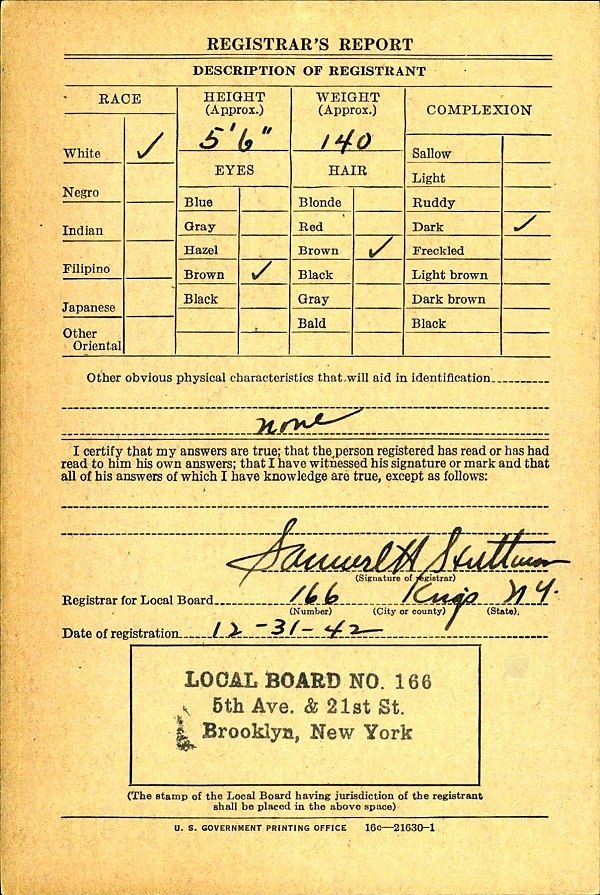 REGISTRAR'S REPORT
DESCRIPTION OF REGISTRANT
RACE
HEIGHT
(Approx.)
WEIGHT
(Approx.)
COMPLEXION
5'6"
140
White ✓
Negro
Indian
Filipino
Japanese
Other
Oriental
EYES
Blue
Gray
Hazel
Brown ✓
Black
HAIR
Blonde
Red
Brown ✓
Black
Gray
Bald
Sallow
Light
Ruddy
Dark ✓
Freckled
Light brown
Dark brown
Black
Other obvious physical characteristics that will aid in identification
none
I certify that my answers are true; that the person registered has read or has had
read to him his own answers; that I have witnessed his signature or mark and that
all of his answers of which I have knowledge are true, except as follows:
Samuel H
(Signature of registrar)
Registrar for Local Board 166 Kings N.Y.
(Number) (City or county) (State)
Date of registration 12-31-42
LOCAL BOARD NO. 166
5th Ave. & 21st St.
Brooklyn, New York
(The stamp of the Local Board having jurisdiction of the registrant
shall be placed in the above space)
U. S. GOVERNMENT PRINTING OFFICE 16c—21630-1